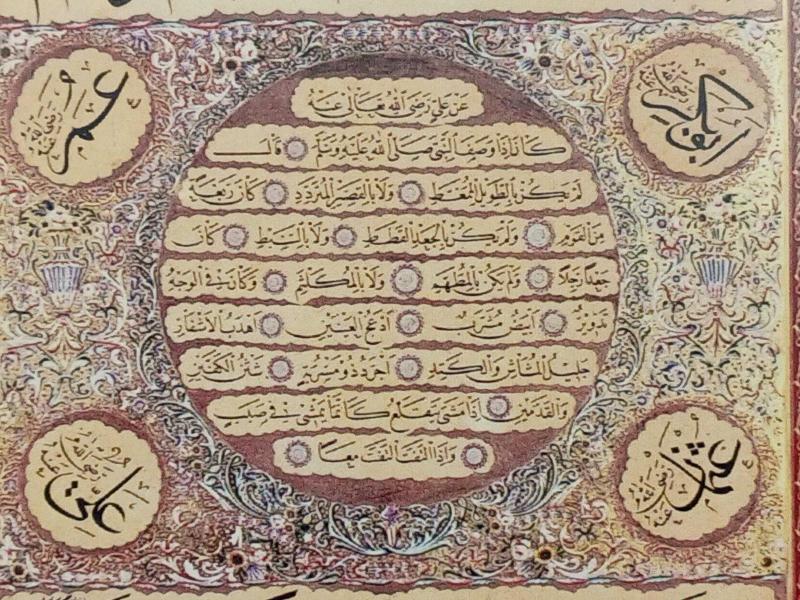 ابو بكر رضى الله عنه
عمر رضى الله عنه
عن علي رضى الله تعالى عنه
كان اذا وصف النبى صلى الله عليه وسلم قال
لم يكن بالطويل الممغط ولا بالقصير المتردد كان ربعة
من القوم ولم يكن بالجعد القطط ولا بالسبط كان
جعدا رجلا ولم يكن بالمطهم ولا بالمكلثم وكان فى الوجه
تدوير ابيض مشرب ادعج العينين اهدب الاشفار
جليل المشاش والكتد اجرد ذو مسربة شثن الكفين
والقدمين اذا مشى يتقلع كانما يمشى فى صبب
واذا التفت التفت معا
عثمان رضى الله عنه
على رضى الله عنه